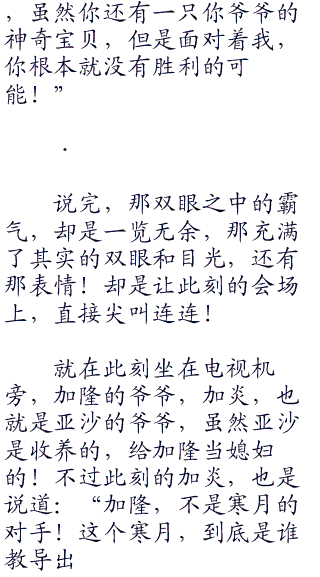 ，虽然你还有一只你爷爷的
神奇宝贝，但是面对着我，
你根本就没有胜利的可
能！”
．
说完，那双眼之中的霸
气，却是一览无余，那充满
了其实的双眼和目光，还有
那表情！却是让此刻的会场
上，直接尖叫连连！
就在此刻坐在电视机
旁，加隆的爷爷，加炎，也
就是亚沙的爷爷，虽然亚沙
是收养的，给加隆当媳妇
的！不过此刻的加炎，也是
说道：“加隆，不是寒月的
对手！这个寒月，到底是谁
教导出